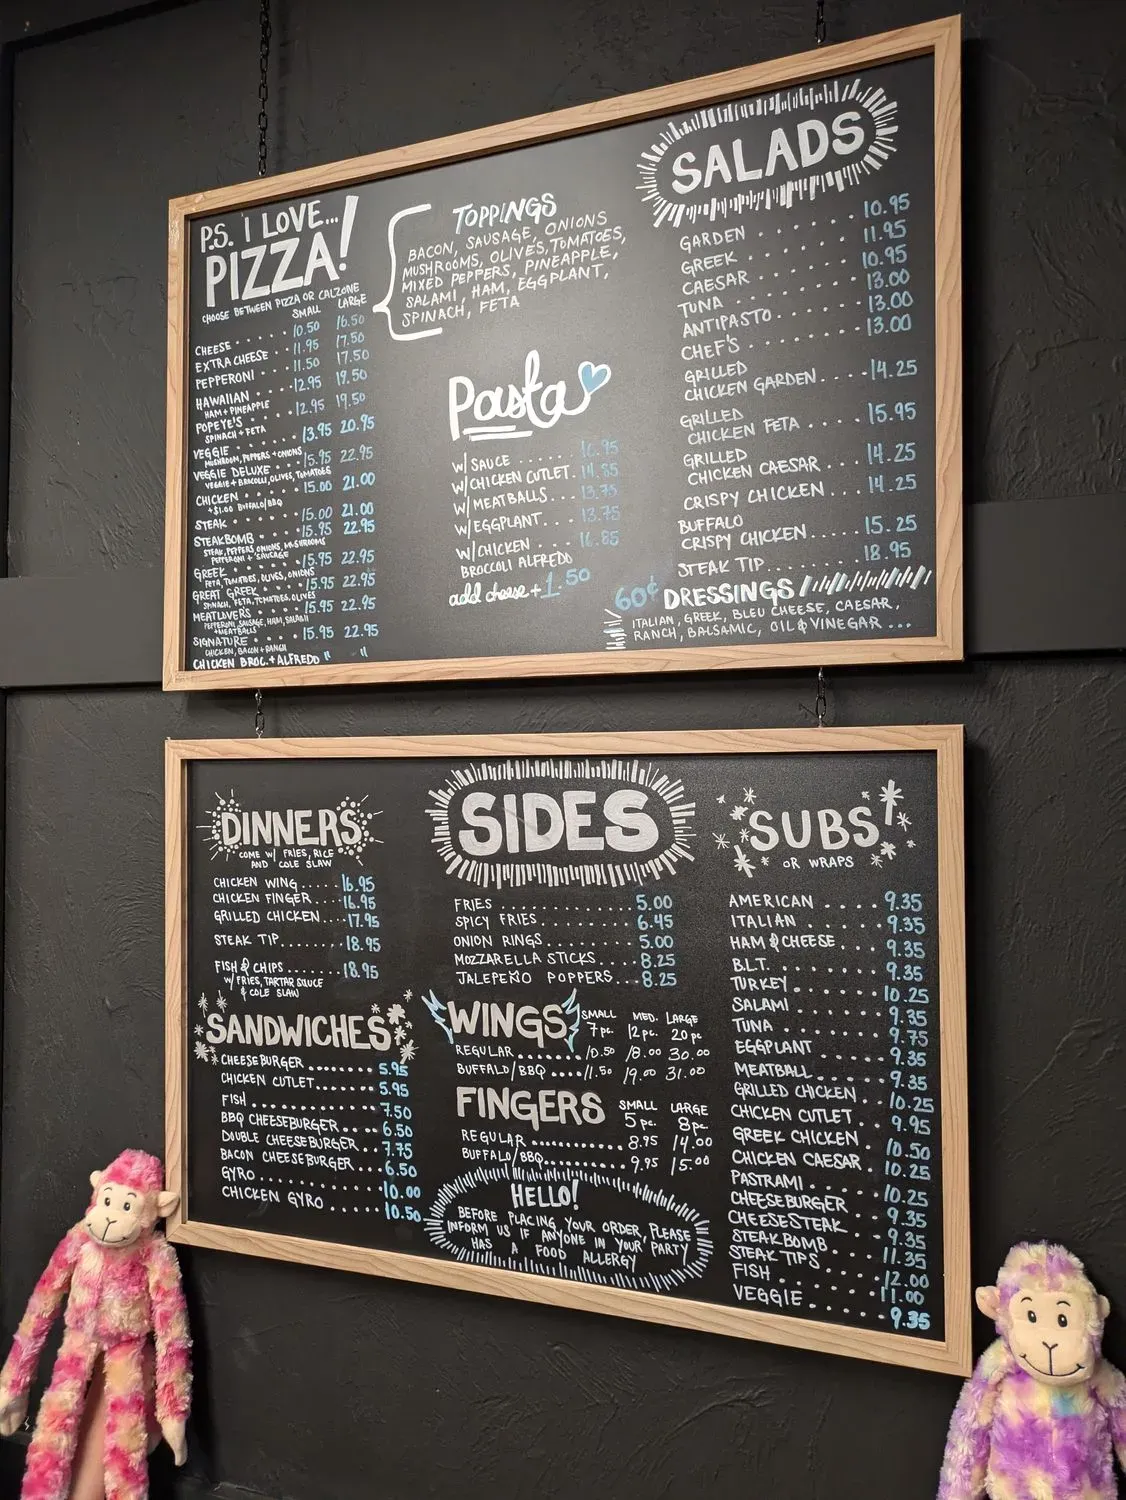 P.S. I LOVE...
PIZZA!
CHOOSE BETWEEN PIZZA OR CALZONE
SMALL LARGE
CHEESE 10.50 16.50
EXTRA CHEESE 11.95 17.50
PEPPERONI 11.50 17.50
HAWAIIAN 12.95 19.50
HAM + PINEAPPLE
POPEYE'S 12.95 19.50
SPINACH + FETA
VEGGIE 13.95 20.95
MUSHROOM, PEPPERS + ONIONS
VEGGIE DELUXE 15.95 22.95
VEGGIE + BROCOLLI, OLIVES, TOMATOES
CHICKEN 15.00 21.00
+$1.00 BUFFALO/BBQ
STEAK 15.00 21.00
STEAKBOMB 15.95 22.95
STEAK, PEPPERS, ONIONS, MUSHROOMS
PEPPERONI + SAUSAGE
GREEK 15.95 22.95
FETA, TOMATOES, OLIVES, ONIONS
GREAT GREEK 15.95 22.95
SPINACH, FETA, TOMATOES, OLIVES
MEATLOVERS 15.95 22.95
PEPPERONI, SAUSAGE, HAM, SALAMI
+ MEATBALLS
SIGNATURE 15.95 22.95
CHICKEN, BACON + RANCH
CHICKEN BROC. + ALFREDO " "
TOPPINGS
BACON, SAUSAGE, ONIONS
MUSHROOMS, OLIVES, TOMATOES,
MIXED PEPPERS, PINEAPPLE,
SALAMI, HAM, EGGPLANT,
SPINACH, FETA
Pasta
W/ SAUCE 10.95
W/ CHICKEN CUTLET 14.85
W/ MEATBALLS 13.75
W/ EGGPLANT 13.75
W/ CHICKEN 16.85
BROCCOLI ALFREDO
add cheese + 1.50
SALADS
GARDEN 10.95
GREEK 11.95
CAESAR 10.95
TUNA 13.00
ANTIPASTO 13.00
CHEF'S 13.00
GRILLED
CHICKEN GARDEN 14.25
GRILLED
CHICKEN FETA 15.95
GRILLED
CHICKEN CAESAR 14.25
CRISPY CHICKEN 14.25
BUFFALO
CRISPY CHICKEN 15.25
STEAK TIP 18.95
60¢ DRESSINGS
ITALIAN, GREEK, BLEU CHEESE, CAESAR,
RANCH, BALSAMIC, OIL & VINEGAR ...
DINNERS
COME W/ FRIES, RICE
AND COLE SLAW
CHICKEN WING 16.95
CHICKEN FINGER 16.95
GRILLED CHICKEN 17.95
STEAK TIP 18.95
FISH & CHIPS 18.95
W/ FRIES, TARTAR SAUCE
& COLE SLAW
SANDWICHES
CHEESEBURGER 5.95
CHICKEN CUTLET 5.95
FISH 7.50
BBQ CHEESEBURGER 6.50
DOUBLE CHEESEBURGER 7.75
BACON CHEESEBURGER 6.50
GYRO 10.00
CHICKEN GYRO 10.50
SIDES
FRIES 5.00
SPICY FRIES 6.45
ONION RINGS 5.00
MOZZARELLA STICKS 8.25
JALEPEÑO POPPERS 8.25
WINGS SMALL MED. LARGE
7 pc. 12 pc. 20 pc
REGULAR 10.50 18.00 30.00
BUFFALO/BBQ 11.50 19.00 31.00
FINGERS SMALL LARGE
5 pc. 8 pc.
REGULAR 8.95 14.00
BUFFALO/BBQ 9.95 15.00
HELLO!
BEFORE PLACING YOUR ORDER, PLEASE
INFORM US IF ANYONE IN YOUR PARTY
HAS A FOOD ALLERGY
SUBS
OR WRAPS
AMERICAN 9.35
ITALIAN 9.35
HAM & CHEESE 9.35
B.L.T. 9.35
TURKEY 10.25
SALAMI 9.35
TUNA 9.75
EGGPLANT 9.35
MEATBALL 9.35
GRILLED CHICKEN 10.25
CHICKEN CUTLET 9.95
GREEK CHICKEN 10.50
CHICKEN CAESAR 10.25
PASTRAMI 10.25
CHEESEBURGER 9.35
CHEESESTEAK 9.35
STEAKBOMB 11.35
STEAK TIPS 12.00
FISH 11.00
VEGGIE 9.35